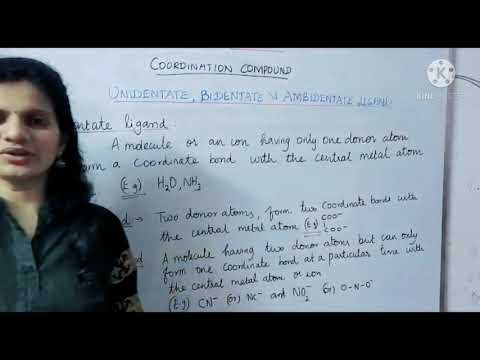 COORDINATION COMPOUND
UNIDENTATE, BIDENTATE & AMBIDENTATE LIGAND
ligand :
A molecule or an ion having only one donor atom
form a coordinate bond with the central metal atom
(E.g) H₂O, NH₃
Two donor atoms, form two coordinate bonds with
the central metal atom (E.g) COO⁻
COO⁻
A molecule having two donor atoms but can only
form one coordinate bond at a particular time with
the central metal atom or ion
(E.g) CN⁻ (or) NC⁻ and NO₂⁻ (or) O-N-O⁻